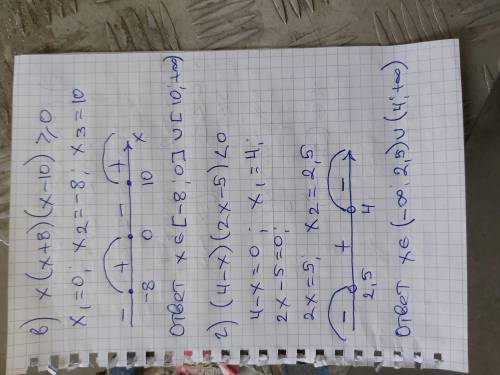 в) x(x+8)(x-10) ≥ 0
x₁=0; x₂=-8; x₃=10
- + - + x
-8 0 10
Ответ x ∈ [-8; 0] ∪ [10; +∞)
г) (4-x)(2x-5) < 0
4-x=0; x₁=4;
2x-5=0;
2x=5; x₂=2,5
- + -
2,5 4
Ответ x ∈ (-∞; 2,5) ∪ (4; +∞)